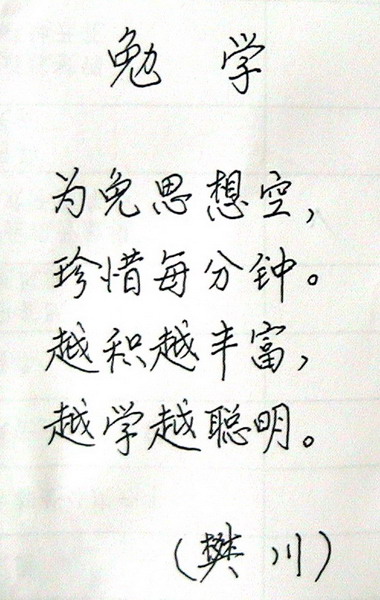 勉 学
为免思想空，
珍惜每分钟。
越积越丰富，
越学越聪明。
（樊川）